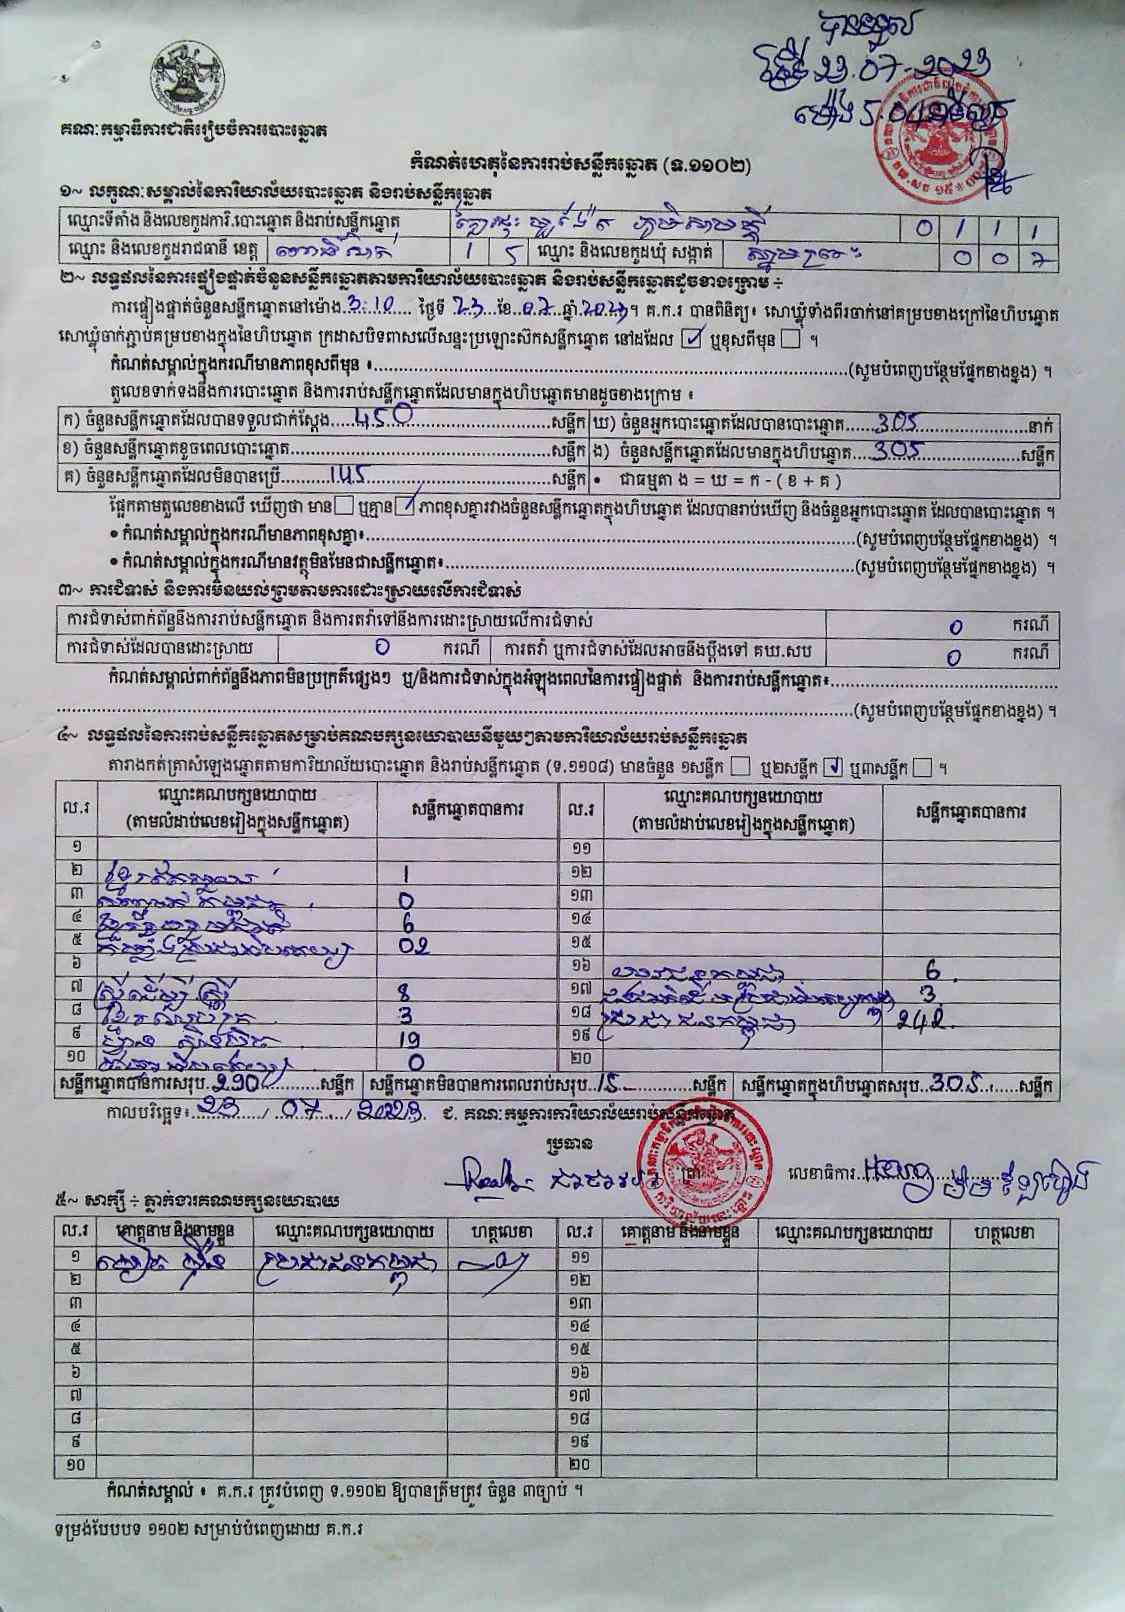 បានទទួល
ថ្ងៃទី 23.07.2023
ម៉ោង 5.
គណៈកម្មាធិការជាតិរៀបចំការបោះឆ្នោត
កំណត់ហេតុនៃការរាប់សន្លឹកឆ្នោត (ទ.១១០២)
១~ លក្ខណៈសម្គាល់នៃការិយាល័យបោះឆ្នោត និងរាប់សន្លឹកឆ្នោត
ឈ្មោះទីតាំង និងលេខកូដការិ.បោះឆ្នោត និងរាប់សន្លឹកឆ្នោត 0 1 1 1
ឈ្មោះ និងលេខកូដរាជធានី ខេត្ត ពោធិ៍សាត់ 1 5 ឈ្មោះ និងលេខកូដឃុំ សង្កាត់ 0 0 7
២~ លទ្ធផលនៃការផ្ទៀងផ្ទាត់ចំនួនសន្លឹកឆ្នោតតាមការិយាល័យបោះឆ្នោត និងរាប់សន្លឹកឆ្នោតដូចខាងក្រោម ÷
ការផ្ទៀងផ្ទាត់ចំនួនសន្លឹកឆ្នោតនៅម៉ោង 3:10 ថ្ងៃទី 23 ខែ 07 ឆ្នាំ 2023 ។ គ.ក.រ បានពិនិត្យ៖ សោឃ្លុំទាំងពីរចាក់នៅគម្របខាងក្រៅនៃហិបឆ្នោត
សោឃ្លុំចាក់ភ្ជាប់គម្របខាងក្នុងនៃហិបឆ្នោត ក្រដាសបិទពាសលើសន្ទះប្រឡោះស៊កសន្លឹកឆ្នោត នៅដដែល ☑ ឬខុសពីមុន ☐ ។
កំណត់សម្គាល់ក្នុងករណីមានភាពខុសពីមុន ៖ (សូមបំពេញបន្ថែមផ្នែកខាងខ្នង) ។
តួលេខទាក់ទងនឹងការបោះឆ្នោត និងការរាប់សន្លឹកឆ្នោតដែលមានក្នុងហិបឆ្នោតមានដូចខាងក្រោម ៖
ក) ចំនួនសន្លឹកឆ្នោតដែលបានទទួលជាក់ស្តែង 450 សន្លឹក ឃ) ចំនួនអ្នកបោះឆ្នោតដែលបានបោះឆ្នោត 305 នាក់
ខ) ចំនួនសន្លឹកឆ្នោតខូចពេលបោះឆ្នោត សន្លឹក ង) ចំនួនសន្លឹកឆ្នោតដែលមានក្នុងហិបឆ្នោត 305 សន្លឹក
គ) ចំនួនសន្លឹកឆ្នោតដែលមិនបានប្រើ 145 សន្លឹក • ជាធម្មតា ង = ឃ = ក - ( ខ + គ )
ផ្អែកតាមតួលេខខាងលើ ឃើញថា មាន ☐ ឬគ្មាន ☑ ភាពខុសគ្នារវាងចំនួនសន្លឹកឆ្នោតក្នុងហិបឆ្នោត ដែលបានរាប់ឃើញ និងចំនួនអ្នកបោះឆ្នោត ដែលបានបោះឆ្នោត ។
• កំណត់សម្គាល់ក្នុងករណីមានភាពខុសគ្នា៖ (សូមបំពេញបន្ថែមផ្នែកខាងខ្នង) ។
• កំណត់សម្គាល់ក្នុងករណីមានវត្ថុមិនមែនជាសន្លឹកឆ្នោត៖ (សូមបំពេញបន្ថែមផ្នែកខាងខ្នង) ។
៣~ ការជំទាស់ និងការមិនយល់ព្រមតាមការដោះស្រាយលើការជំទាស់
ការជំទាស់ពាក់ព័ន្ធនឹងការរាប់សន្លឹកឆ្នោត និងការតវ៉ាទៅនឹងការដោះស្រាយលើការជំទាស់ 0 ករណី
ការជំទាស់ដែលបានដោះស្រាយ 0 ករណី ការតវ៉ា ឬការជំទាស់ដែលអាចនឹងប្តឹងទៅ គឃ.សប 0 ករណី
កំណត់សម្គាល់ពាក់ព័ន្ធនឹងភាពមិនប្រក្រតីផ្សេងៗ ឬ/និងការជំទាស់ក្នុងអំឡុងពេលនៃការផ្ទៀងផ្ទាត់ និងការរាប់សន្លឹកឆ្នោត៖
(សូមបំពេញបន្ថែមផ្នែកខាងខ្នង) ។
៤~ លទ្ធផលនៃការរាប់សន្លឹកឆ្នោតសម្រាប់គណបក្សនយោបាយនីមួយៗតាមការិយាល័យរាប់សន្លឹកឆ្នោត
តារាងកត់ត្រាសំឡេងឆ្នោតតាមការិយាល័យបោះឆ្នោត និងរាប់សន្លឹកឆ្នោត (ទ.១១០៨) មានចំនួន ១សន្លឹក ☐ ឬ២សន្លឹក ☑ ឬ៣សន្លឹក ☐ ។
ល.រ ឈ្មោះគណបក្សនយោបាយ (តាមលំដាប់លេខរៀងក្នុងសន្លឹកឆ្នោត) សន្លឹកឆ្នោតបានការ ល.រ ឈ្មោះគណបក្សនយោបាយ (តាមលំដាប់លេខរៀងក្នុងសន្លឹកឆ្នោត) សន្លឹកឆ្នោតបានការ
១ ១១
២ 1 ១២
៣ 0 ១៣
៤ 6 ១៤
៥ 02 ១៥
៦ ១៦ 6
៧ ស្ត្រីដើម្បីស្ត្រី 8 ១៧ 3
៨ 3 ១៨ ប្រជាជនកម្ពុជា 242
៩ 19 ១៩
១០ 0 ២០
សន្លឹកឆ្នោតបានការសរុប 290 សន្លឹក សន្លឹកឆ្នោតមិនបានការពេលរាប់សរុប 15 សន្លឹក សន្លឹកឆ្នោតក្នុងហិបឆ្នោតសរុប 305 សន្លឹក
កាលបរិច្ឆេទ៖ 23 / 07 / 2023 ជ. គណៈកម្មការការិយាល័យរាប់សន្លឹកឆ្នោត
ប្រធាន
លេខាធិការ
៥~ សាក្សី ÷ ភ្នាក់ងារគណបក្សនយោបាយ
ល.រ គោត្តនាម និងនាមខ្លួន ឈ្មោះគណបក្សនយោបាយ ហត្ថលេខា ល.រ គោត្តនាម និងនាមខ្លួន ឈ្មោះគណបក្សនយោបាយ ហត្ថលេខា
១ ប្រជាជនកម្ពុជា ១១
២ ១២
៣ ១៣
៤ ១៤
៥ ១៥
៦ ១៦
៧ ១៧
៨ ១៨
៩ ១៩
១០ ២០
កំណត់សម្គាល់ ៖ គ.ក.រ ត្រូវបំពេញ ទ.១១០២ ឱ្យបានត្រឹមត្រូវ ចំនួន ៣ច្បាប់ ។
ទម្រង់បែបបទ ១១០២ សម្រាប់បំពេញដោយ គ.ក.រ